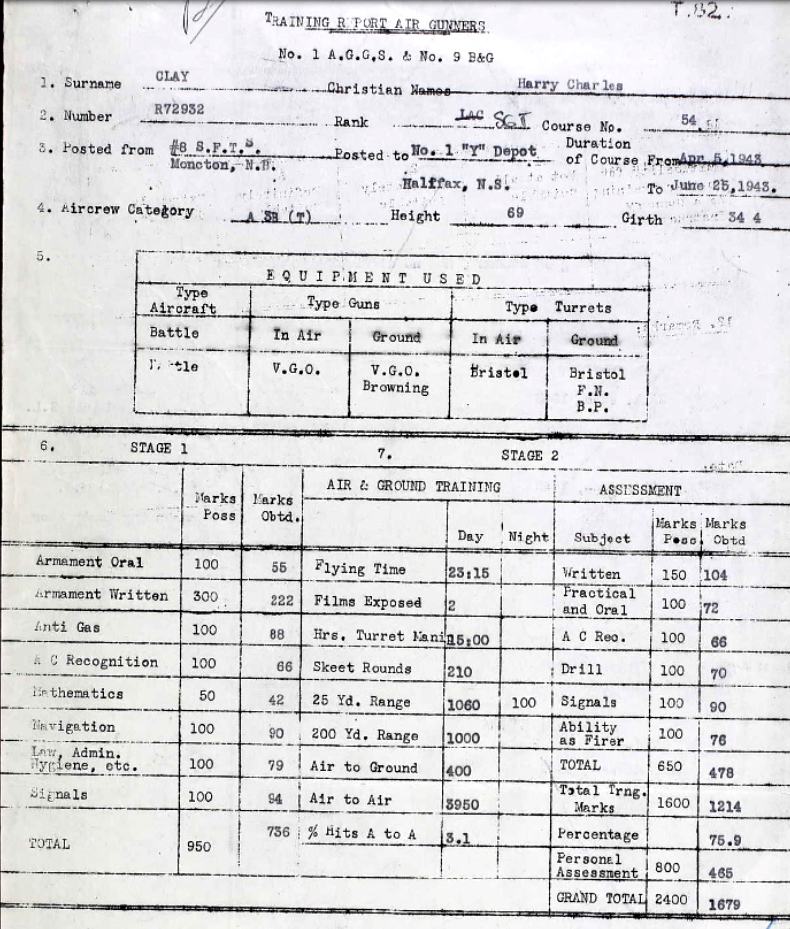 T.82.
TRAINING REPORT AIR GUNNERS
No. 1 A.G.G.S. & No. 9 B&G
1. Surname CLAY Christian Names Harry Charles
2. Number R72932 Rank LAC SGT Course No. 54
3. Posted from #8 S.F.T.S. Posted to No. 1 "Y" Depot Duration of Course From Apr 5,1943
Moncton, N.B. Halifax, N.S. To June 25,1943.
4. Aircrew Category A SB (T) Height 69 Girth 34 4
5.
EQUIPMENT USED
Type Aircraft Type Guns Type Turrets
Battle In Air Ground In Air Ground
V.G.O. V.G.O. Bristol Bristol
Browning F.N.
B.P.
6. STAGE 1 7. STAGE 2
AIR & GROUND TRAINING ASSESSMENT
Marks Poss Marks Obtd. Day Night Subject Marks Poss Marks Obtd
Armament Oral 100 55 Flying Time 23:15 Written 150 104
Armament Written 300 222 Films Exposed 2 Practical and Oral 100 72
Anti Gas 100 88 Hrs. Turret Mani 15:00 A C Rec. 100 66
A C Recognition 100 66 Skeet Rounds 210 Drill 100 70
Mathematics 50 42 25 Yd. Range 1060 100 Signals 100 90
Navigation 100 90 200 Yd. Range 1000 Ability as Firer 100 76
Law, Admin. Hygiene, etc. 100 79 Air to Ground 400 TOTAL 650 478
Signals 100 94 Air to Air 3950 Total Trng. Marks 1600 1214
TOTAL 950 736 % Hits A to A 3.1 Percentage 75.9
Personal Assessment 800 465
GRAND TOTAL 2400 1679